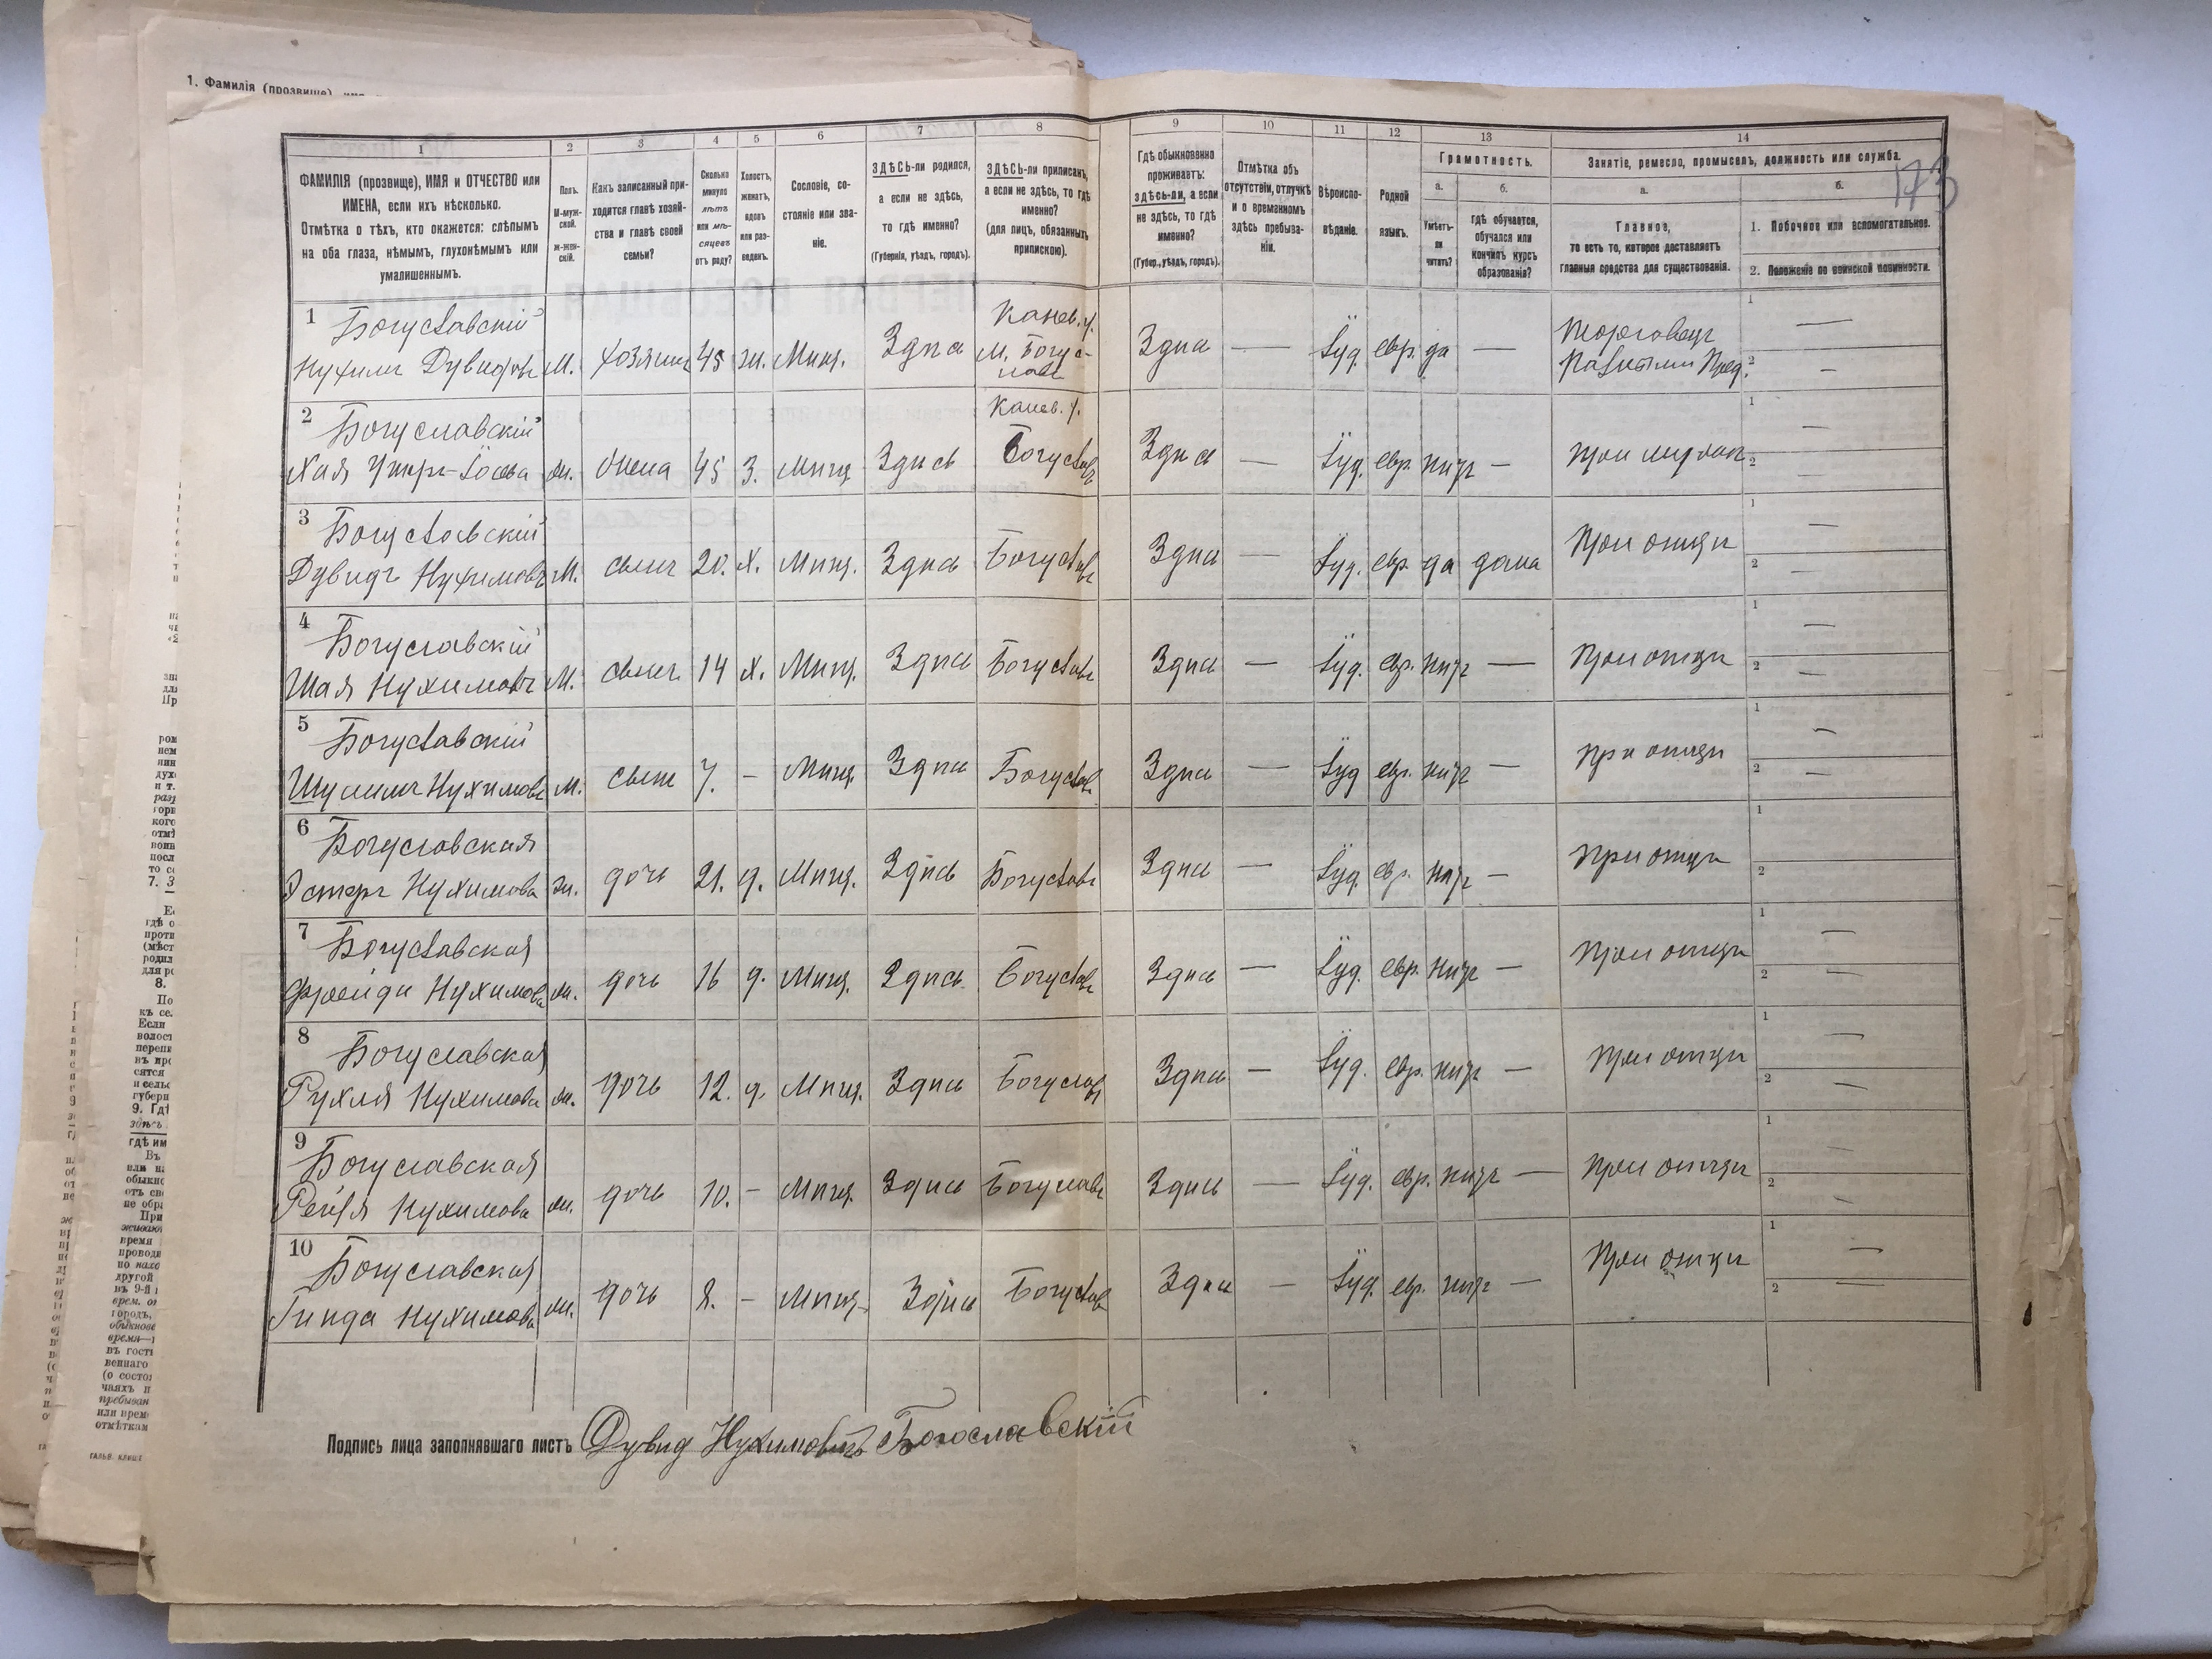 1. Фамилія (прозвище), имя
173
1 2 3 4 5 6 7 8 9 10 11 12 13 14
ФАМИЛІЯ (прозвище), ИМЯ и ОТЧЕСТВО или
ИМЕНА, если ихъ нѣсколько.
Отмѣтка о тѣхъ, кто окажется: слѣпымъ
на оба глаза, нѣмымъ, глухонѣмымъ или
умалишеннымъ.
Полъ.
М-муж-
ской.
Ж-жен-
скій.
Какъ записанный при-
ходится главѣ хозяй-
ства и главѣ своей
семьи?
Сколько
минуло
лѣтъ
или мѣ-
сяцевъ
отъ роду?
Холостъ,
женатъ,
вдовъ
или раз-
веденъ.
Сословіе, со-
стояніе или зва-
ніе.
ЗДѢСЬ-ли родился,
а если не здѣсь,
то гдѣ именно?
(Губернія, уѣздъ, городъ).
ЗДѢСЬ-ли приписанъ,
а если не здѣсь, то гдѣ
именно?
(для лицъ, обязанныхъ
припискою).
Гдѣ обыкновенно
проживаетъ:
здѣсь-ли, а если
не здѣсь, то гдѣ
именно?
(Губер., уѣздъ, городъ).
Отмѣтка объ
отсутствіи, отлучкѣ
и о временномъ
здѣсь пребыва-
ніи.
Вѣроиспо-
вѣданіе.
Родной
языкъ.
Грамотность.
а.
Умѣетъ-
ли
читать?
б.
гдѣ обучается,
обучался или
кончилъ курсъ
образованія?
Занятіе, ремесло, промыселъ, должность или служба.
а.
Главное,
то есть то, которое доставляетъ
главныя средства для существованія.
б.
1. Побочное или вспомогательное.
2. Положеніе по воинской повинности.
1 Богуславскій Канев. у. Торговецъ 1 —
Нухимъ Дувидовъ М. хозяинъ 45 ж. Мѣщ. Здѣсь М. Богус- Здѣсь — Іуд. евр. да — 2 —
лавъ
2 Богуславскій Канев. у. 1 —
Хая Іосева ж. жена 45 З. Мѣщ. Здѣсь Богуславъ Здѣсь — Іуд. евр. нѣтъ — При мужѣ 2 —
3 Богуславскій При отцѣ 1 —
Дувидъ Нухимовъ М. сынъ 20. Х. Мѣщ. Здѣсь Богуславъ Здѣсь — Іуд. евр. да дома 2 —
4 Богуславскій При отцѣ 1 —
Шая Нухимовъ М. сынъ 14 х. Мѣщ. Здѣсь Богуславъ Здѣсь — Іуд. евр. нѣтъ — 2 —
5 Богуславскій При отцѣ 1 —
Шулимъ Нухимовъ М. сынъ 7. — Мѣщ. Здѣсь Богуславъ Здѣсь — Іуд евр. нѣтъ — 2 —
6 Богуславская При отцѣ 1
Эстеръ Нухимова ж. дочь 21. д. Мѣщ. Здѣсь Богуславъ Здѣсь — Іуд. евр. нѣтъ — 2
7 Богуславская При отцѣ 1 —
Фрейди Нухимова ж. дочь 16 д. Мѣщ. Здѣсь Богуславъ Здѣсь — Іуд. евр. нѣтъ — 2 —
8 Богуславская При отцѣ 1 —
Рухля Нухимова ж. дочь 12. д. Мѣщ. Здѣсь Богуславъ Здѣсь — Іуд. евр. нѣтъ — 2 —
9 Богуславская При отцѣ 1 —
Рейзя Нухимова ж. дочь 10. — Мѣщ. Здѣсь Богуславъ Здѣсь — Іуд. евр. нѣтъ — 2 —
10 Богуславская При отцѣ 1 —
Гинда Нухимова ж. дочь 8. — Мѣщ. Здѣсь Богуслав Здѣсь — Іуд. евр. нѣтъ — 2 —
Подпись лица заполнявшаго листъ Дувид Нухимовичъ Богославскій